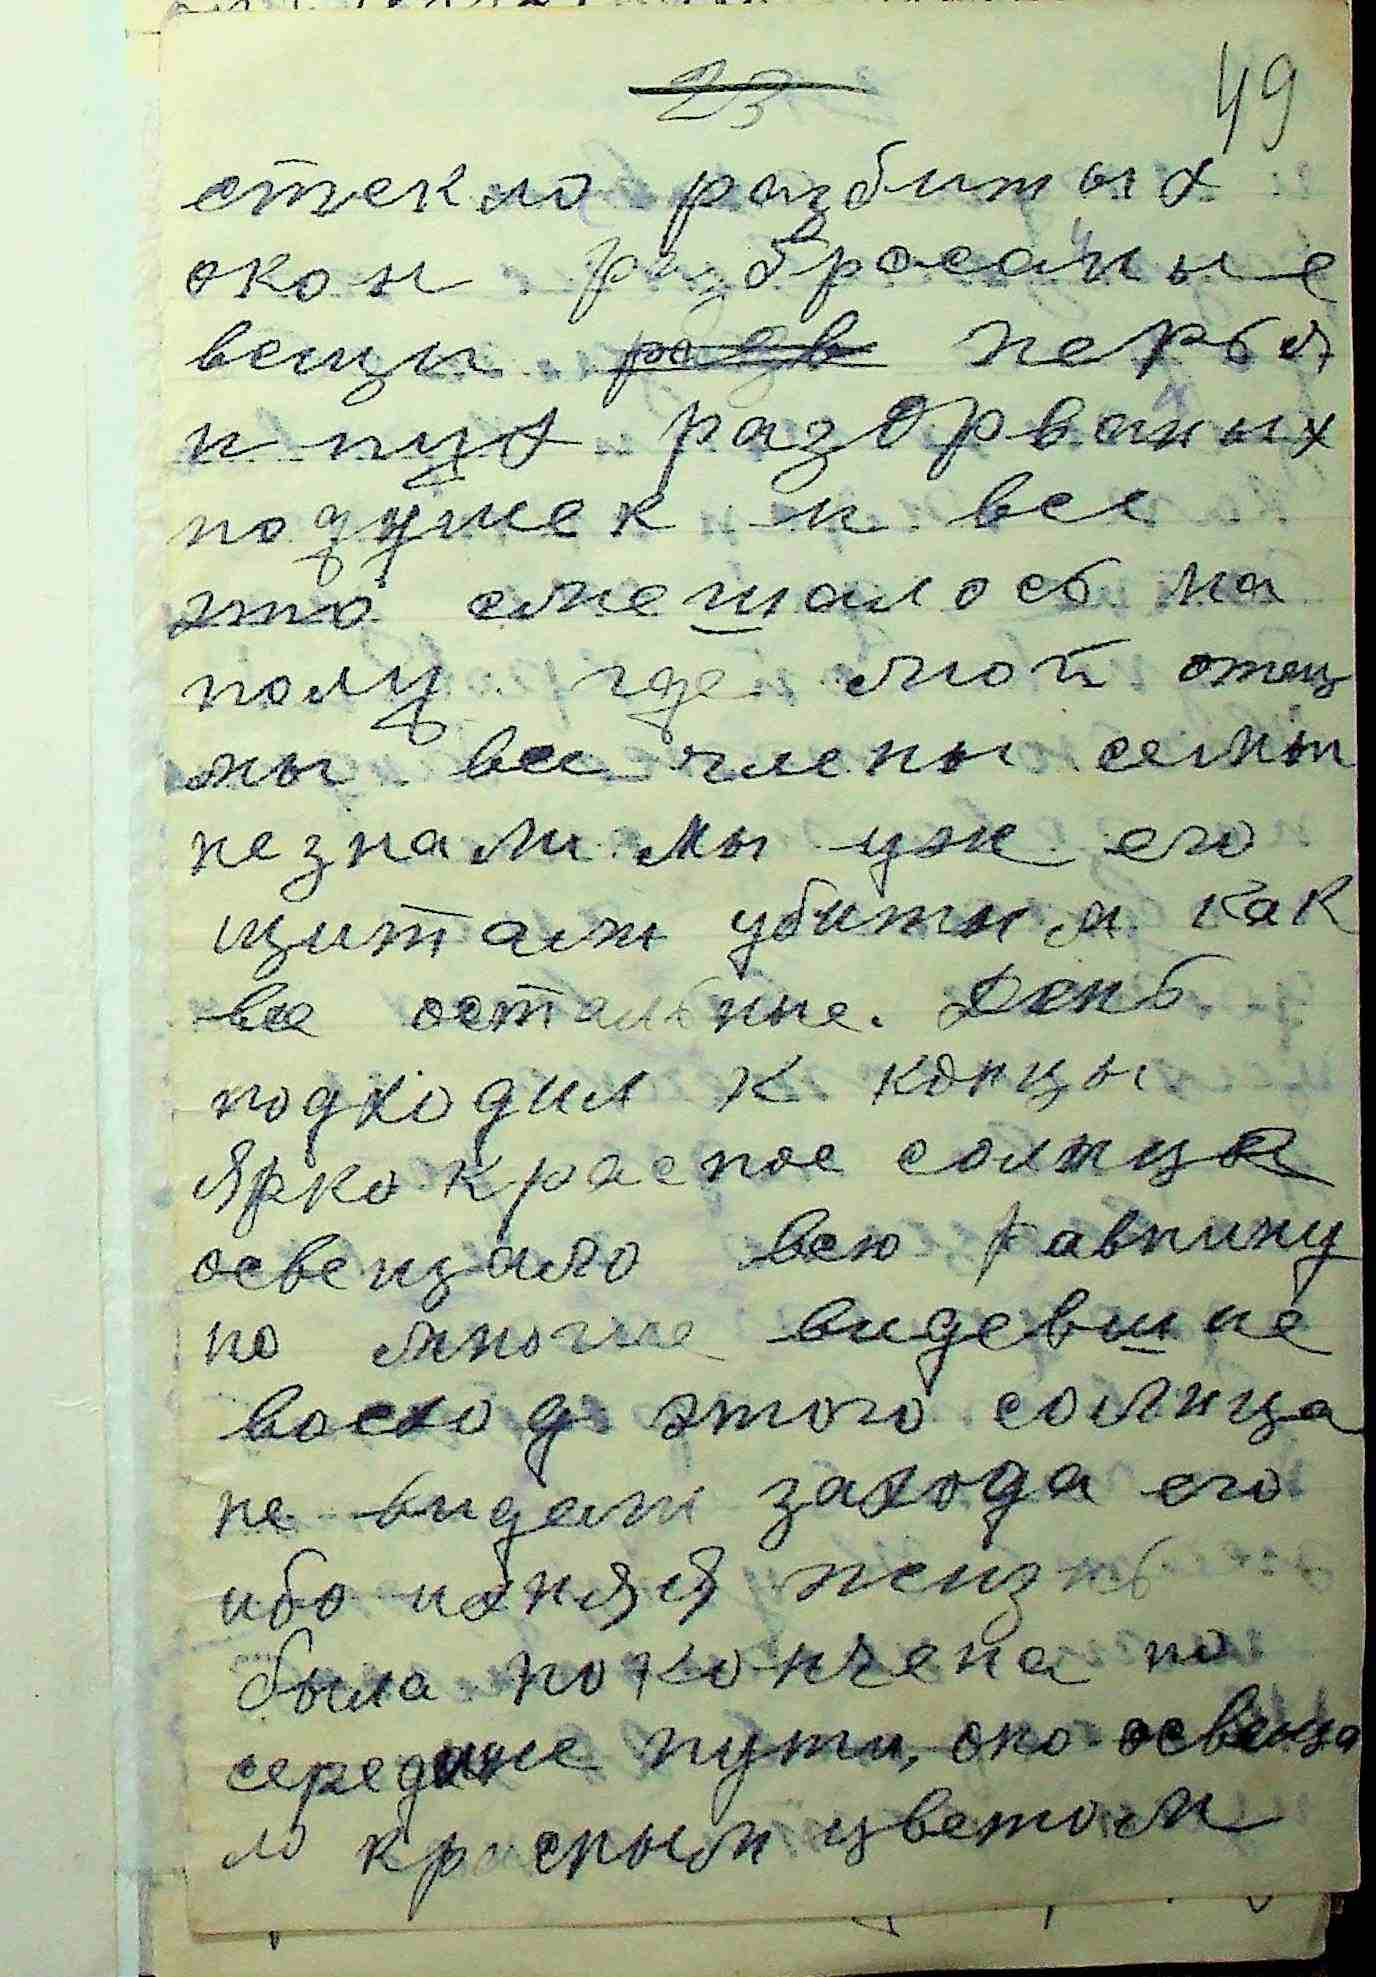 23
49
стекло разбитых
окон разбросаные
вещи разв перья
и пух разорваных
подушек и все
это смешалось на
полу где мой отец
мы все члены семьи
незнали мы уж его
щитали убитым как
все остальные. День
подходил к концы
Ярко красное солнце
освещало всю равнину
но многие видевшие
восход этого солнца
не видели захода его
ибо ихняя жизнь
была покончена по
середине пути, оно освеща
ло красным цветом